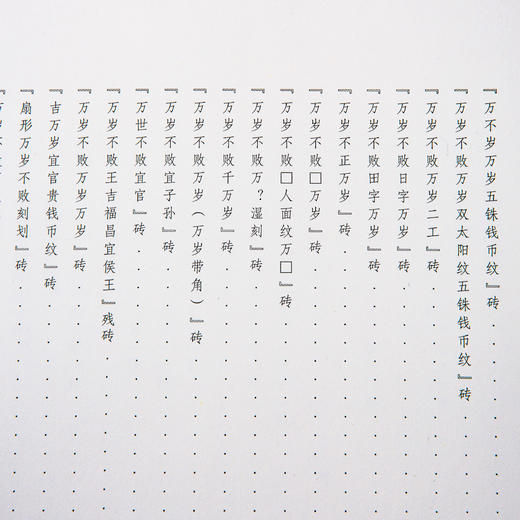 『万不岁万岁五铢钱币纹』砖
『万岁不败万岁双太阳纹五铢钱币纹』砖
『万岁不败万岁二工』砖
『万岁不败日字万岁』砖
『万岁不败田字万岁』砖
『万岁不正万岁』砖
『万岁不败□万岁』砖
『万岁不败□人面纹万□』砖
『万岁不败万？湿刻』砖
『万岁不败千万岁』砖
『万岁不败万岁（万岁带角）』砖
『万岁不败宜子孙』砖
『万世不败宜官』砖
『万岁不败王吉福昌宜侯王』残砖
『万岁不败万岁万岁』砖
『吉万岁宜官贵钱币纹』砖
『扇形万岁不败刻划』砖